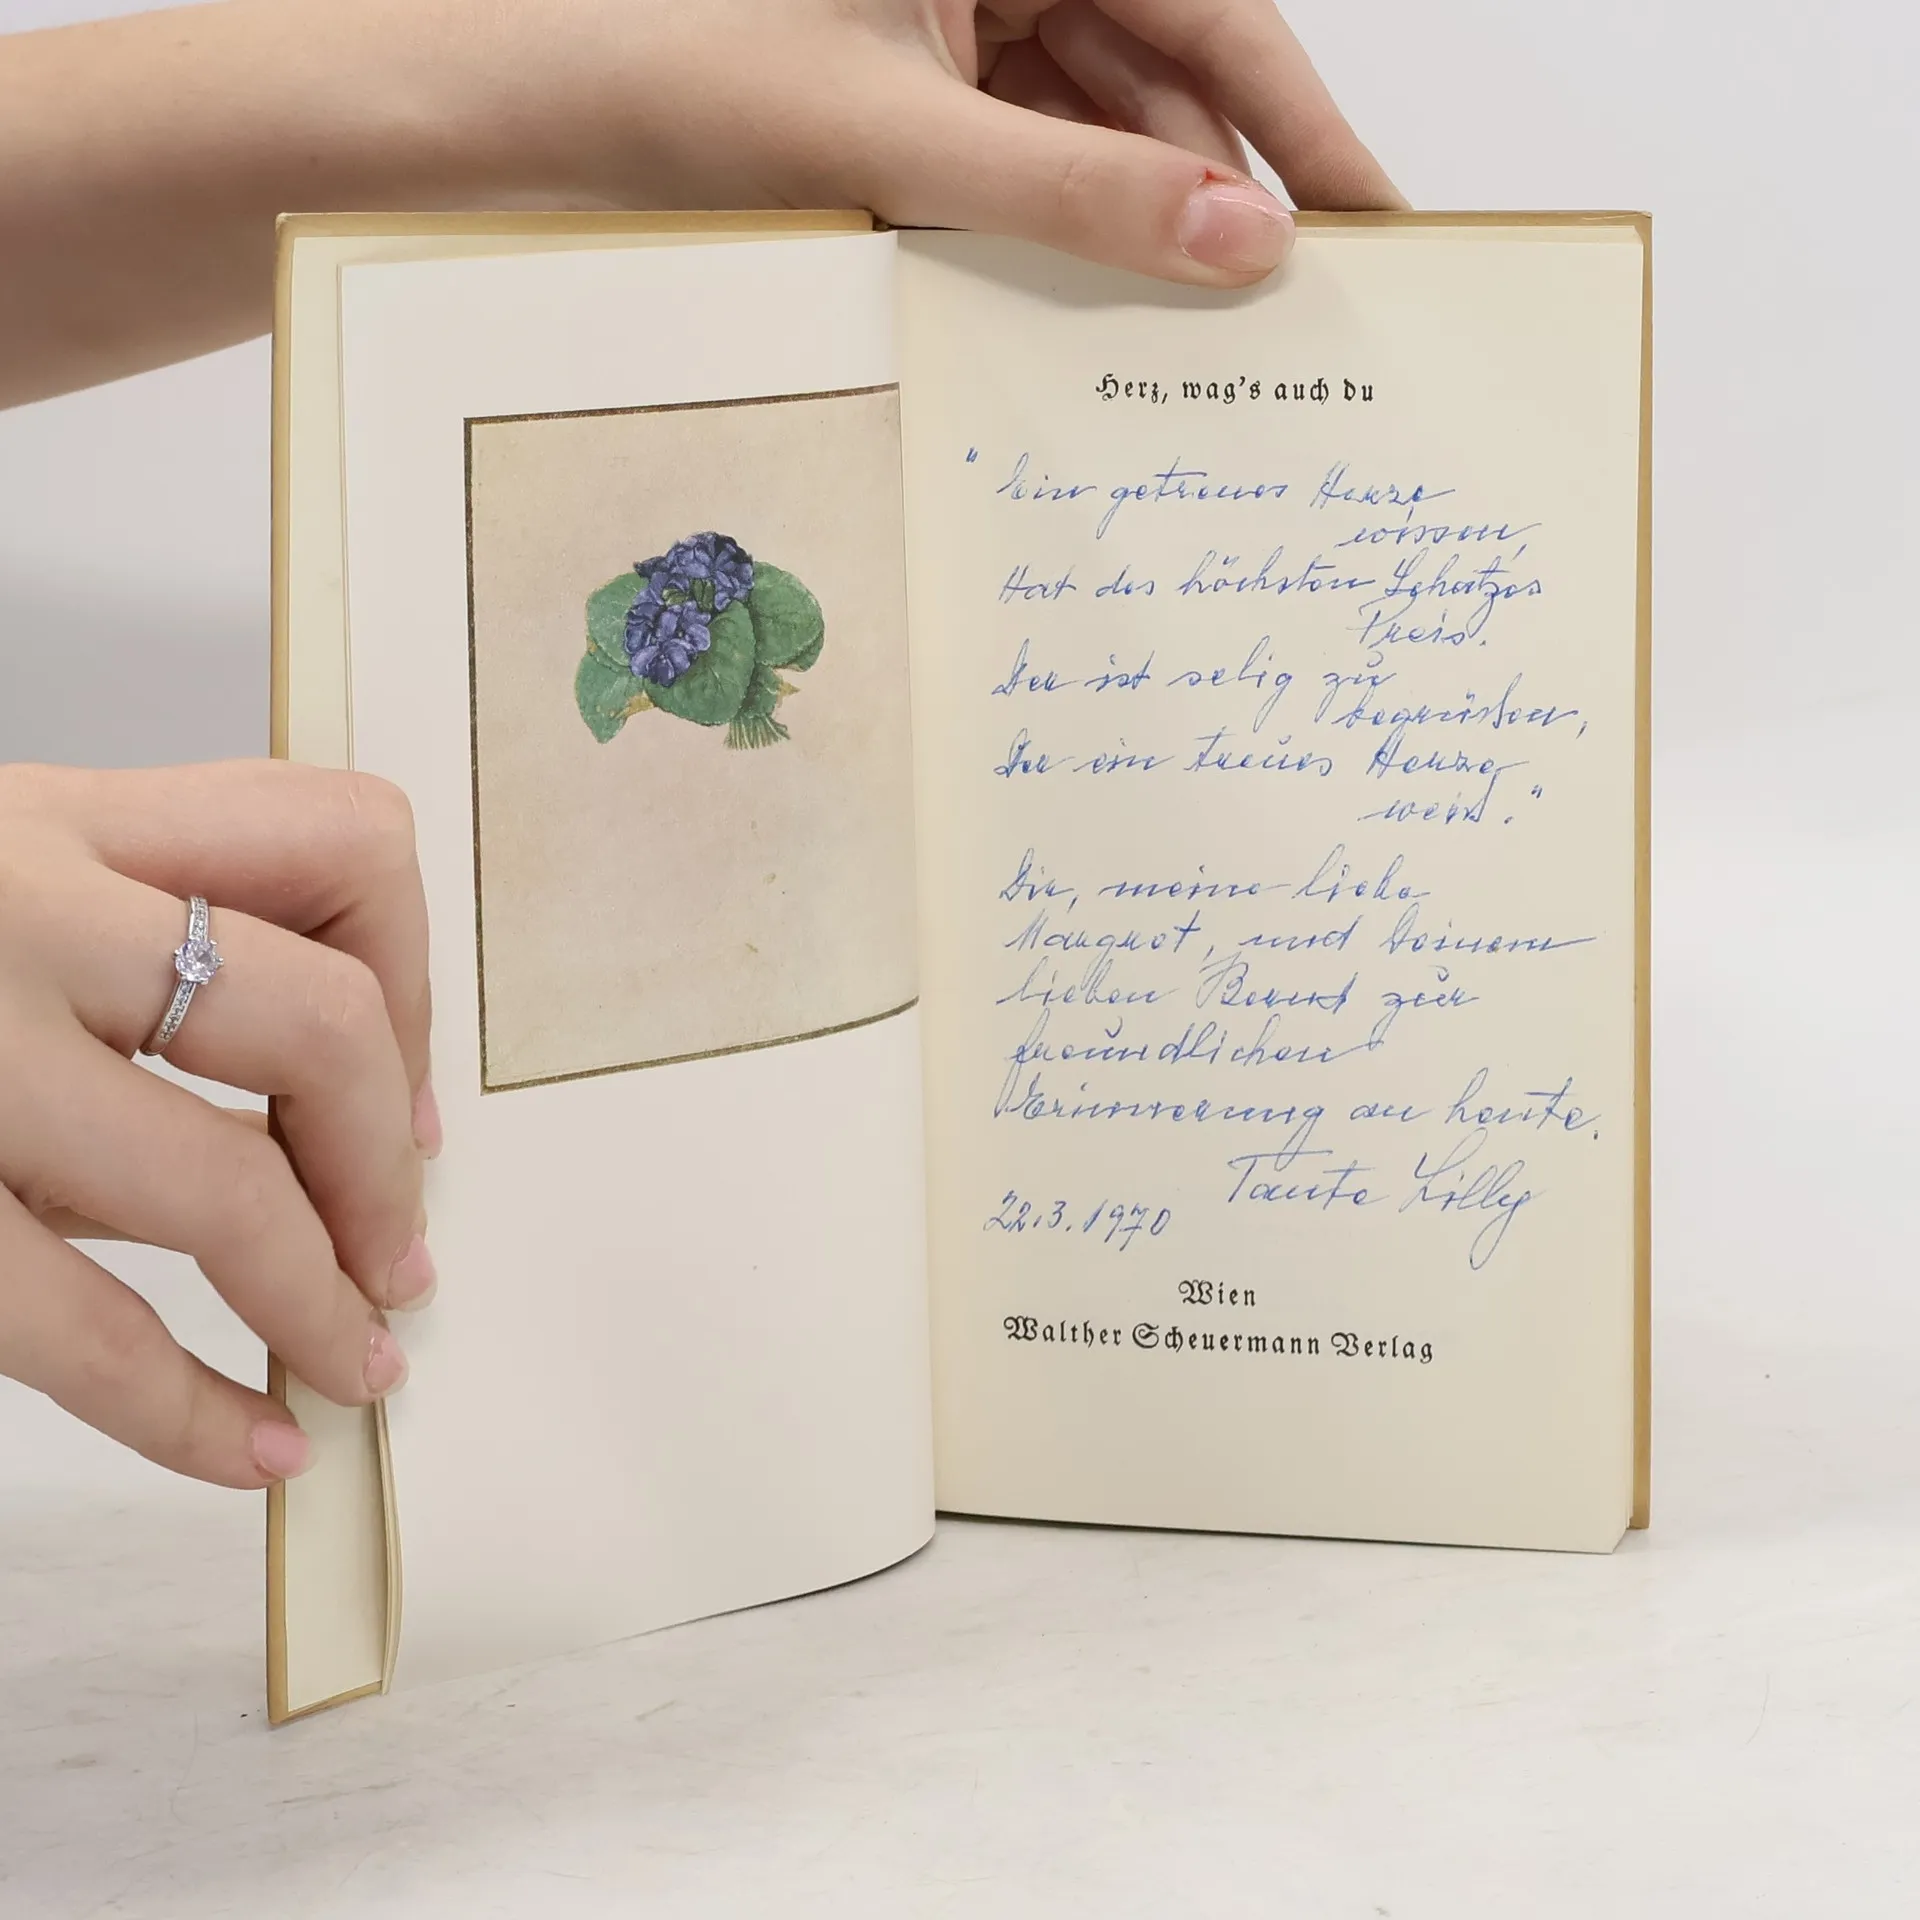 Herz, wag's auch du
" Ein getreues Herze
wissen,
Hat des höchsten Schatzes
Preis.
Der ist selig zu
begrüßen,
Der ein treues Herze
weiß."
Dir, meine liebe
Margret, und Deinem
lieben Bernd zur
freundlichen
Erinnerung an heute.
Tante Lilly
22.3.1970
Wien
Walther Scheuermann Verlag